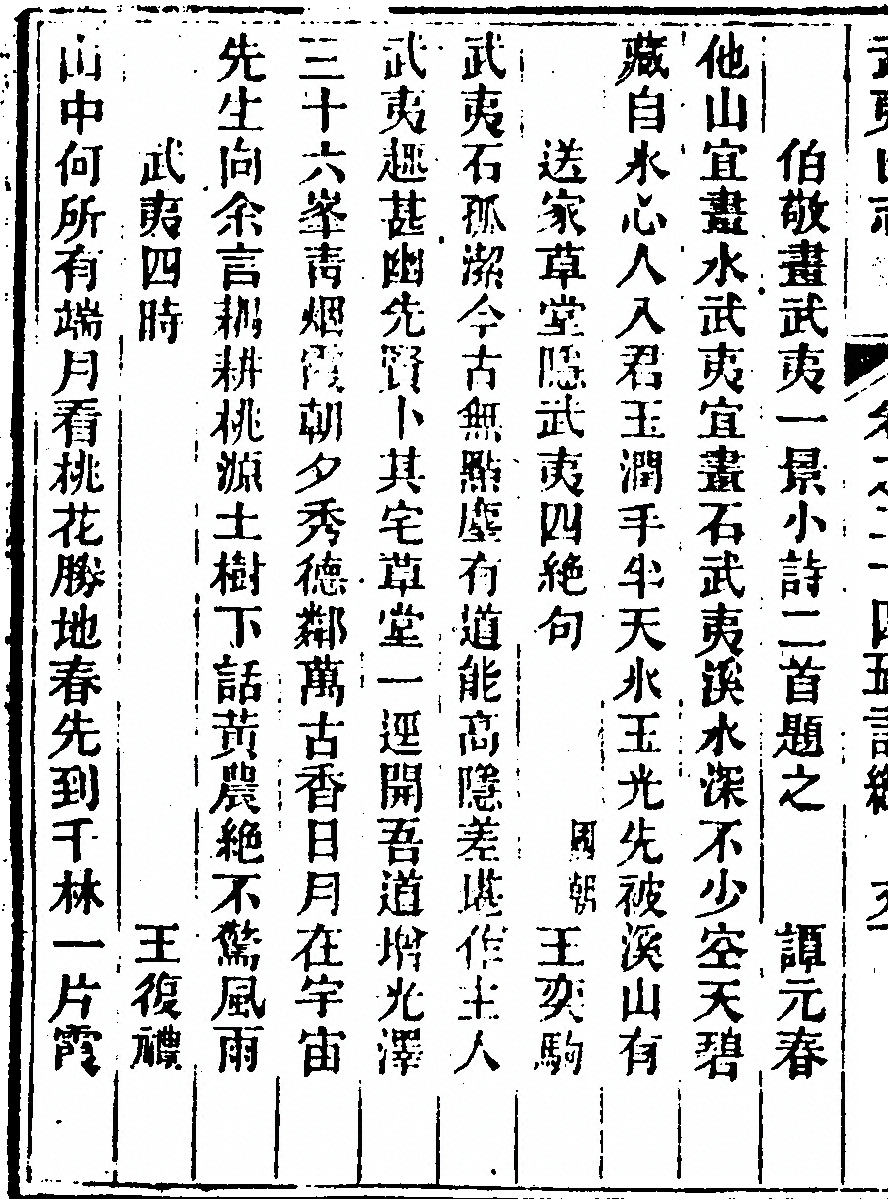 武夷山志 卷之二十四五言絕
伯敬畫武夷一景小詩二首題之 譚元春
他山宜畫水武夷宜畫石武夷溪水深不少空天碧
藏自氷心人入君玉潤手半天氷玉光先被溪山有
送家草堂隱武夷四絶句 國朝 王奕駒
武夷石孤潔今古無點塵有道能高隱差堪作主人
武夷趣甚幽先賢卜其宅草堂一逕開吾道增光澤
三十六峯青烟霞朝夕秀德鄰萬古香日月在宇宙
先生向余言耦耕桃源土樹下話黃農絶不驚風雨
武夷四時 王復禮
山中何所有端月看桃花勝地春先到千林一片霞